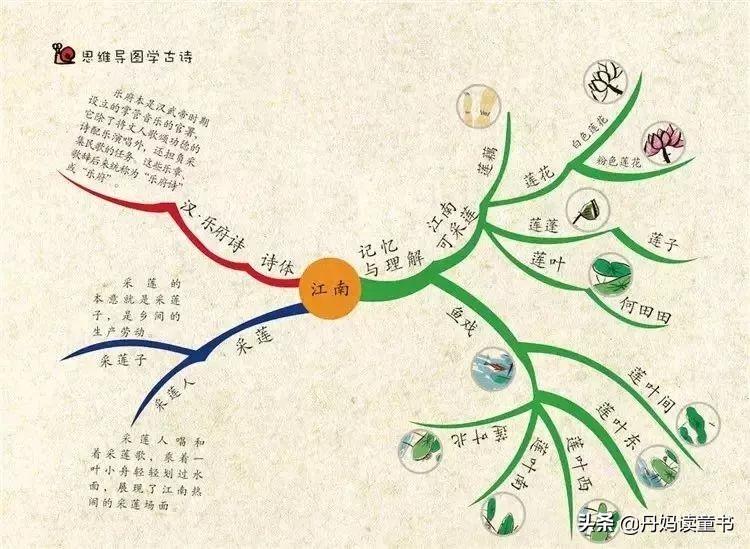 思维导图学古诗
乐府本是汉武帝时期
设立的掌管音乐的官署，
它除了将文人歌颂功德的
诗配乐演唱外，还担负采
集民歌的任务。这些乐章、
歌辞后来统称为“乐府诗”
或“乐府”。
汉·乐府诗
诗体
江南
采莲
采莲的
本意就是采莲
子，是乡间的
生产劳动。
采莲子
采莲人
采莲人唱和
着采莲歌，乘着一
叶小舟轻轻划过水
面，展现了江南热
闹的采莲场面。
记忆
与理解
江南
可采莲
莲藕
莲花
白色莲花
粉色莲花
莲蓬
莲子
莲叶
何田田
鱼戏
莲叶间
莲叶东
莲叶西
莲叶南
莲叶北
头条 @丹妈读童书